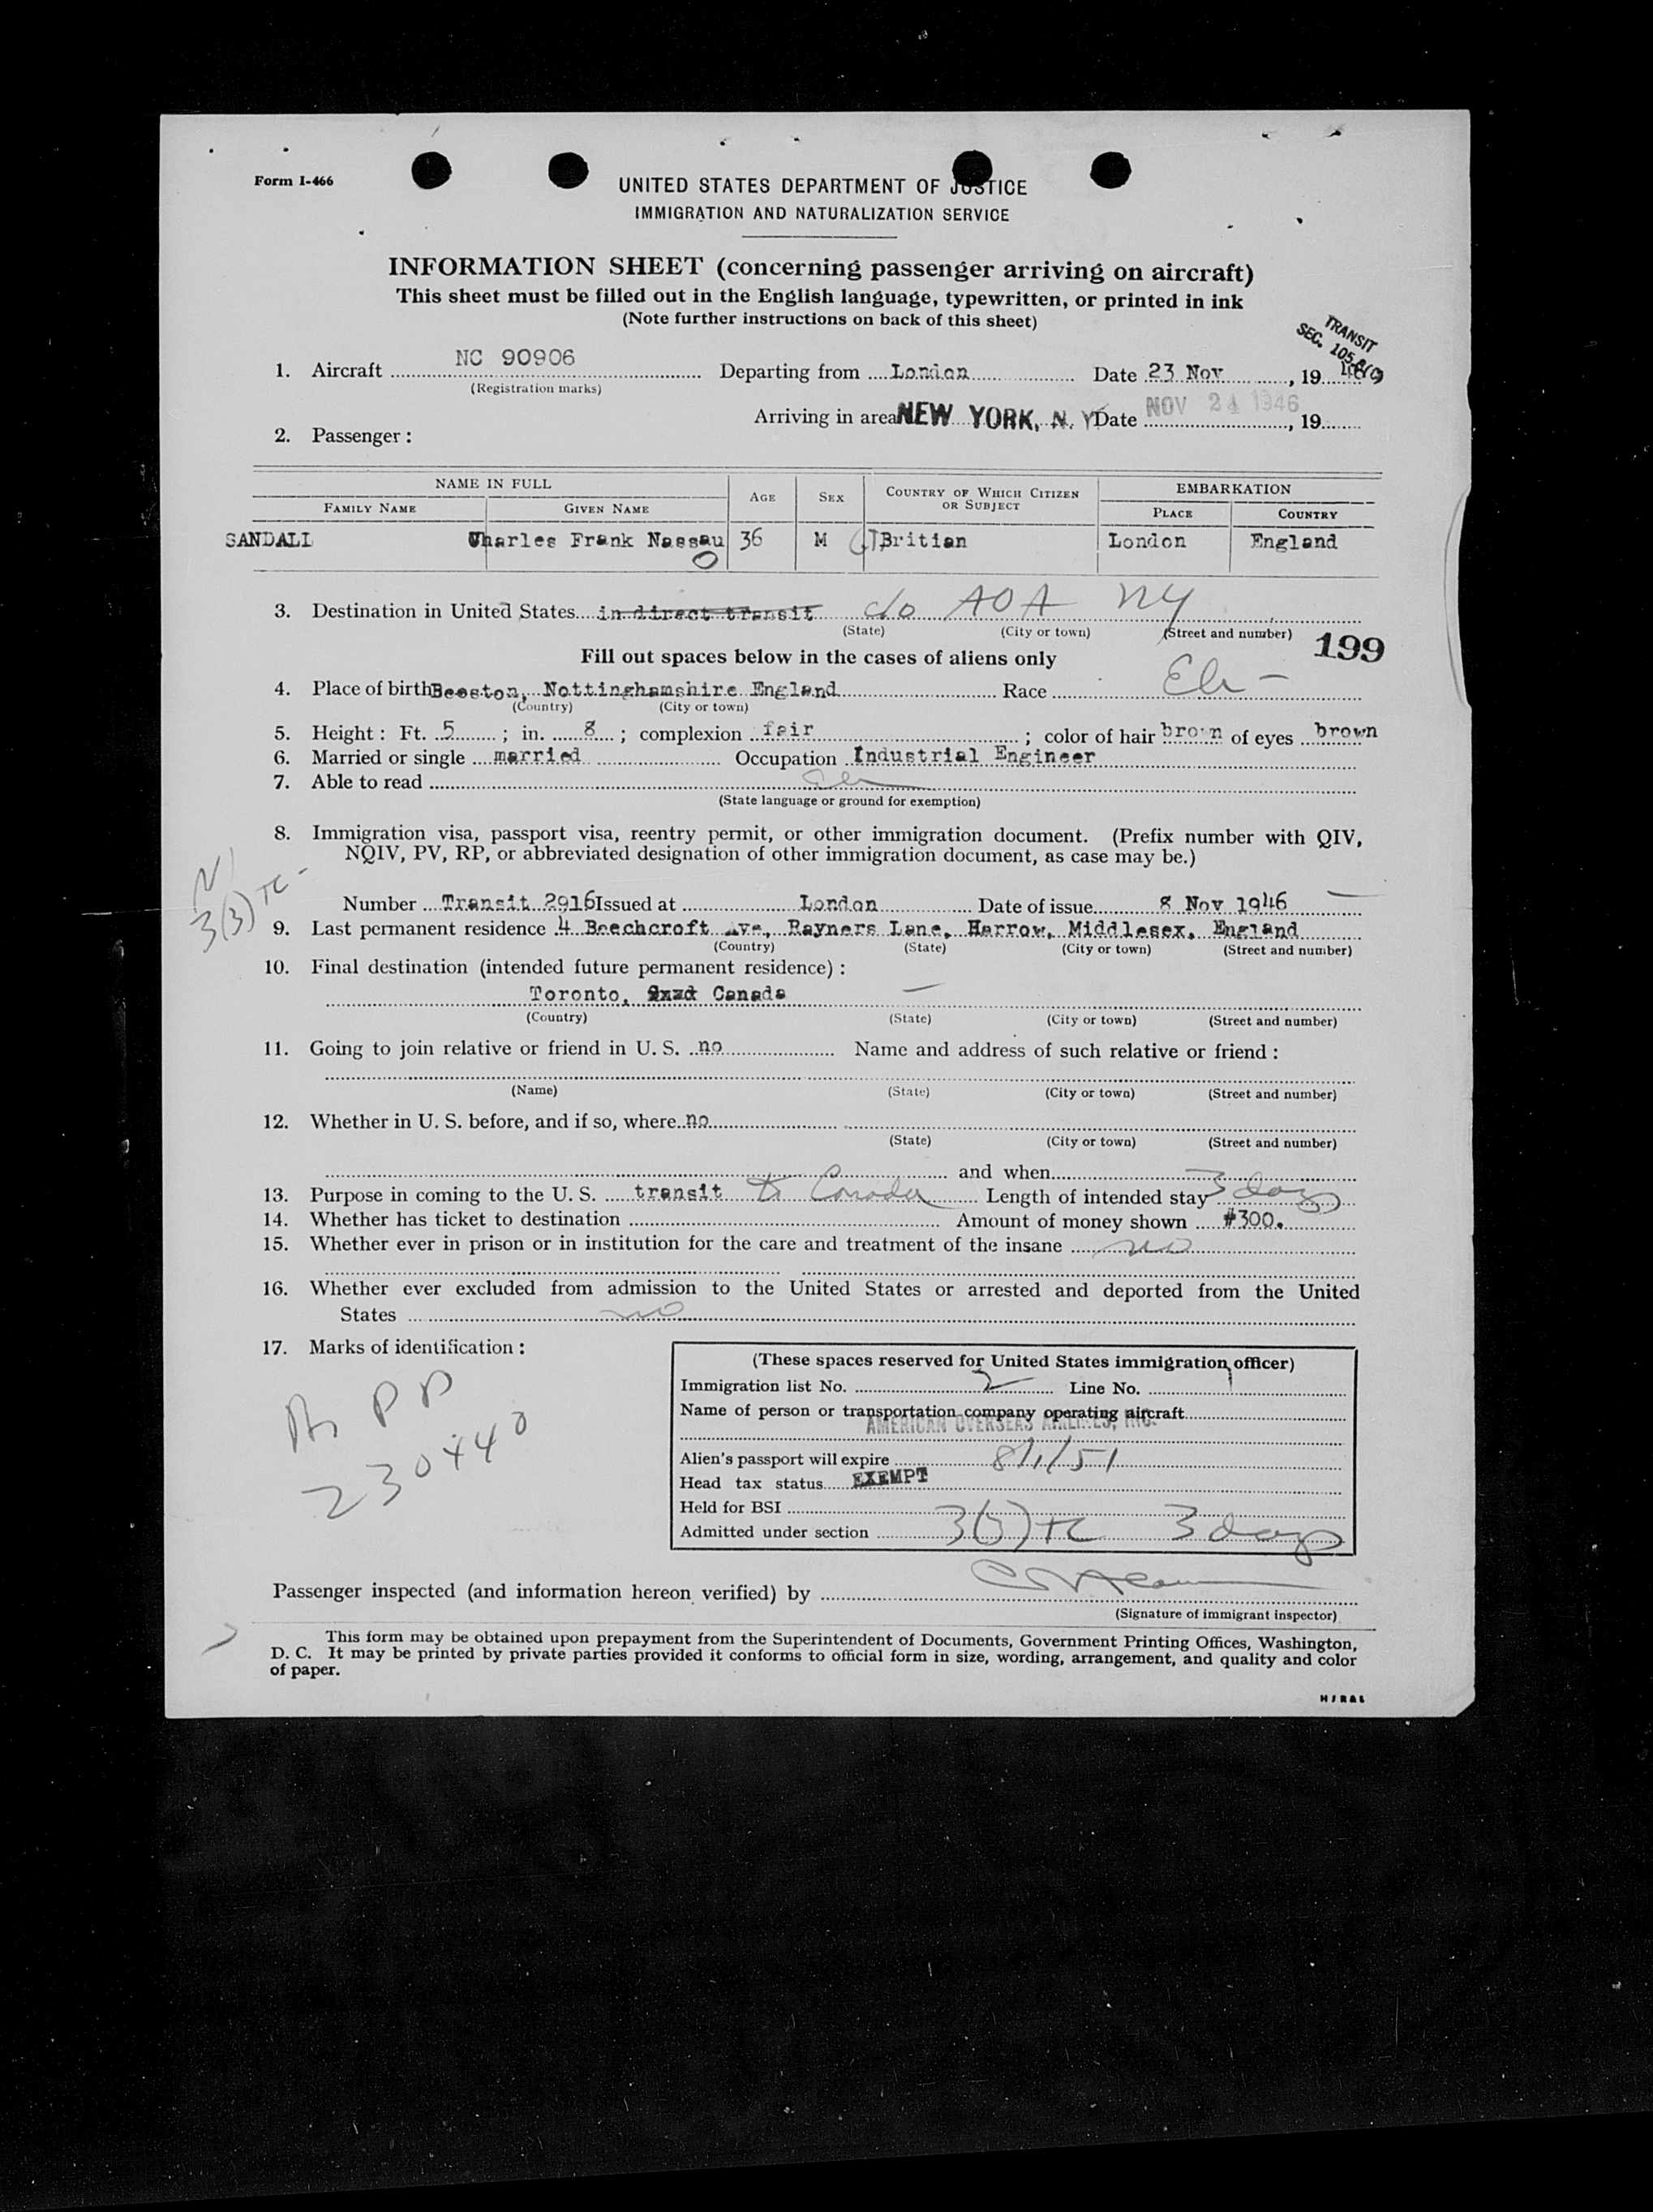 Form I-466
UNITED STATES DEPARTMENT OF JUSTICE
IMMIGRATION AND NATURALIZATION SERVICE
INFORMATION SHEET (concerning passenger arriving on aircraft)
This sheet must be filled out in the English language, typewritten, or printed in ink
(Note further instructions on back of this sheet)
TRANSIT
SEC. 105.
1. Aircraft NC 90906 Departing from London Date 23 Nov, 19
(Registration marks)
Arriving in area NEW YORK, N. Y Date NOV 24 1946, 19
2. Passenger :
NAME IN FULL AGE SEX COUNTRY OF WHICH CITIZEN OR SUBJECT EMBARKATION
FAMILY NAME GIVEN NAME PLACE COUNTRY
SANDALL Charles Frank Nassau 36 M Britian London England
3. Destination in United States in direct transit c/o AOA NY
(State) (City or town) (Street and number)
199
Fill out spaces below in the cases of aliens only
4. Place of birth Beeston, Nottinghamshire England Race
(Country) (City or town)
5. Height : Ft. 5 ; in. 8 ; complexion fair ; color of hair brown of eyes brown
6. Married or single married Occupation Industrial Engineer
7. Able to read
(State language or ground for exemption)
8. Immigration visa, passport visa, reentry permit, or other immigration document. (Prefix number with QIV,
NQIV, PV, RP, or abbreviated designation of other immigration document, as case may be.)
3(3) TC -
Number Transit 2916 Issued at London Date of issue 8 Nov 1946
9. Last permanent residence 4 Beechcroft Ave, Rayners Lane, Harrow, Middlesex, England
(Country) (State) (City or town) (Street and number)
10. Final destination (intended future permanent residence) :
Toronto, Canada
(Country) (State) (City or town) (Street and number)
11. Going to join relative or friend in U. S. no Name and address of such relative or friend :
(Name) (State) (City or town) (Street and number)
12. Whether in U. S. before, and if so, where no
(State) (City or town) (Street and number)
and when
13. Purpose in coming to the U. S. transit to Canada Length of intended stay 3 days
14. Whether has ticket to destination Amount of money shown #300.
15. Whether ever in prison or in institution for the care and treatment of the insane no
16. Whether ever excluded from admission to the United States or arrested and deported from the United
States no
17. Marks of identification :
230440
(These spaces reserved for United States immigration officer)
Immigration list No. 2 Line No. 1
Name of person or transportation company operating aircraft
AMERICAN OVERSEAS AIRLINES, INC.
Alien's passport will expire 8/1/51
Head tax status EXEMPT
Held for BSI
Admitted under section 3(3) TC 3 days
Passenger inspected (and information hereon verified) by
(Signature of immigrant inspector)
This form may be obtained upon prepayment from the Superintendent of Documents, Government Printing Offices, Washington,
D. C. It may be printed by private parties provided it conforms to official form in size, wording, arrangement, and quality and color
of paper.